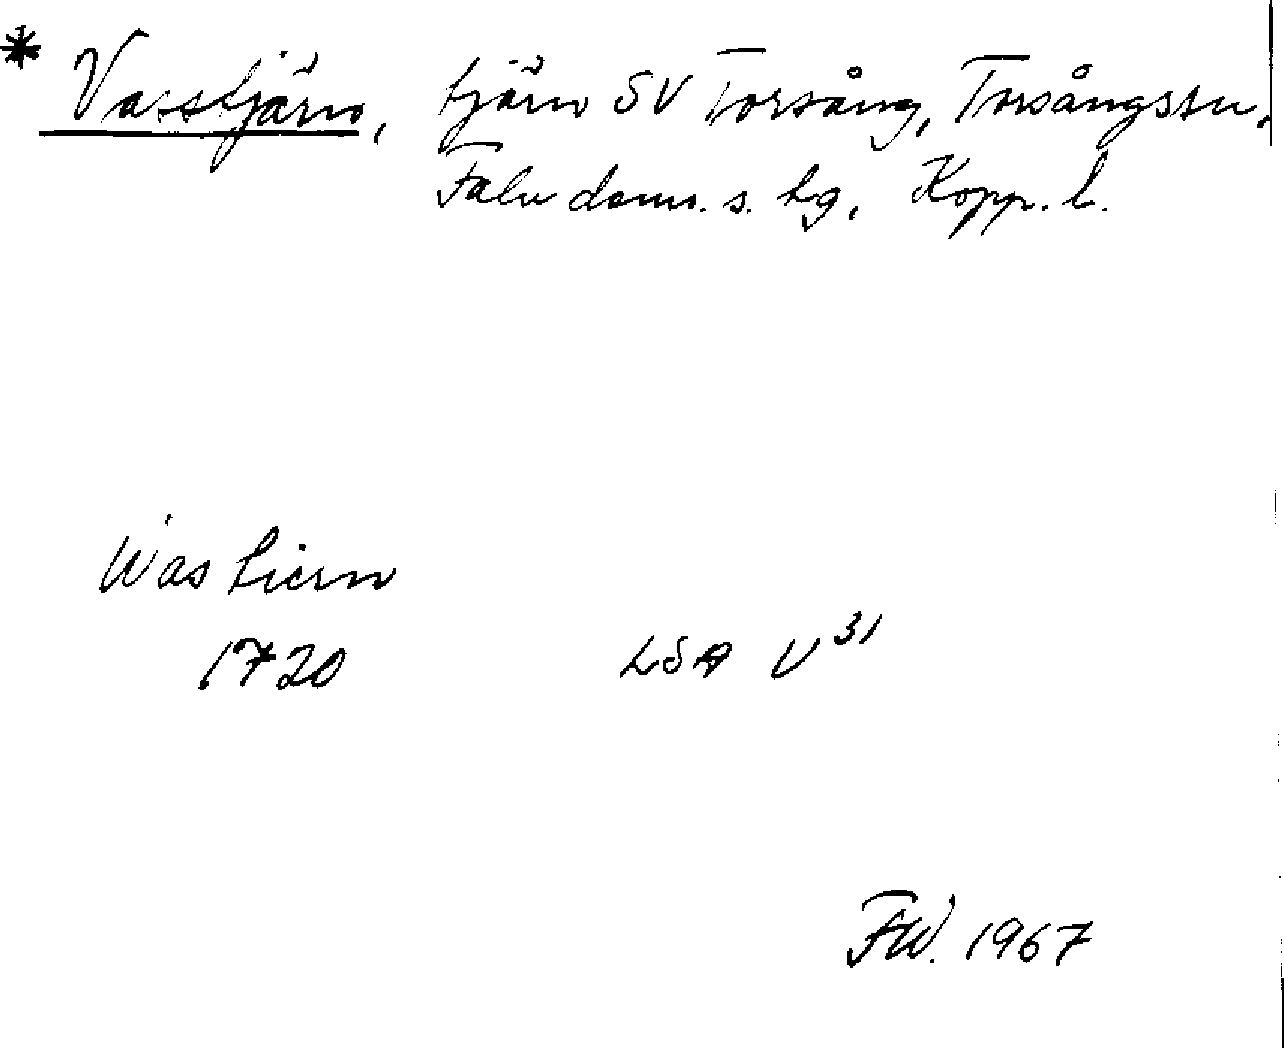 * Vasstjärn, tjärn SV Torsång, Torsångs sn,
Falu doms. s. tg, Kopp. l.
Was tiern
1720 LSA U³¹
FW. 1967